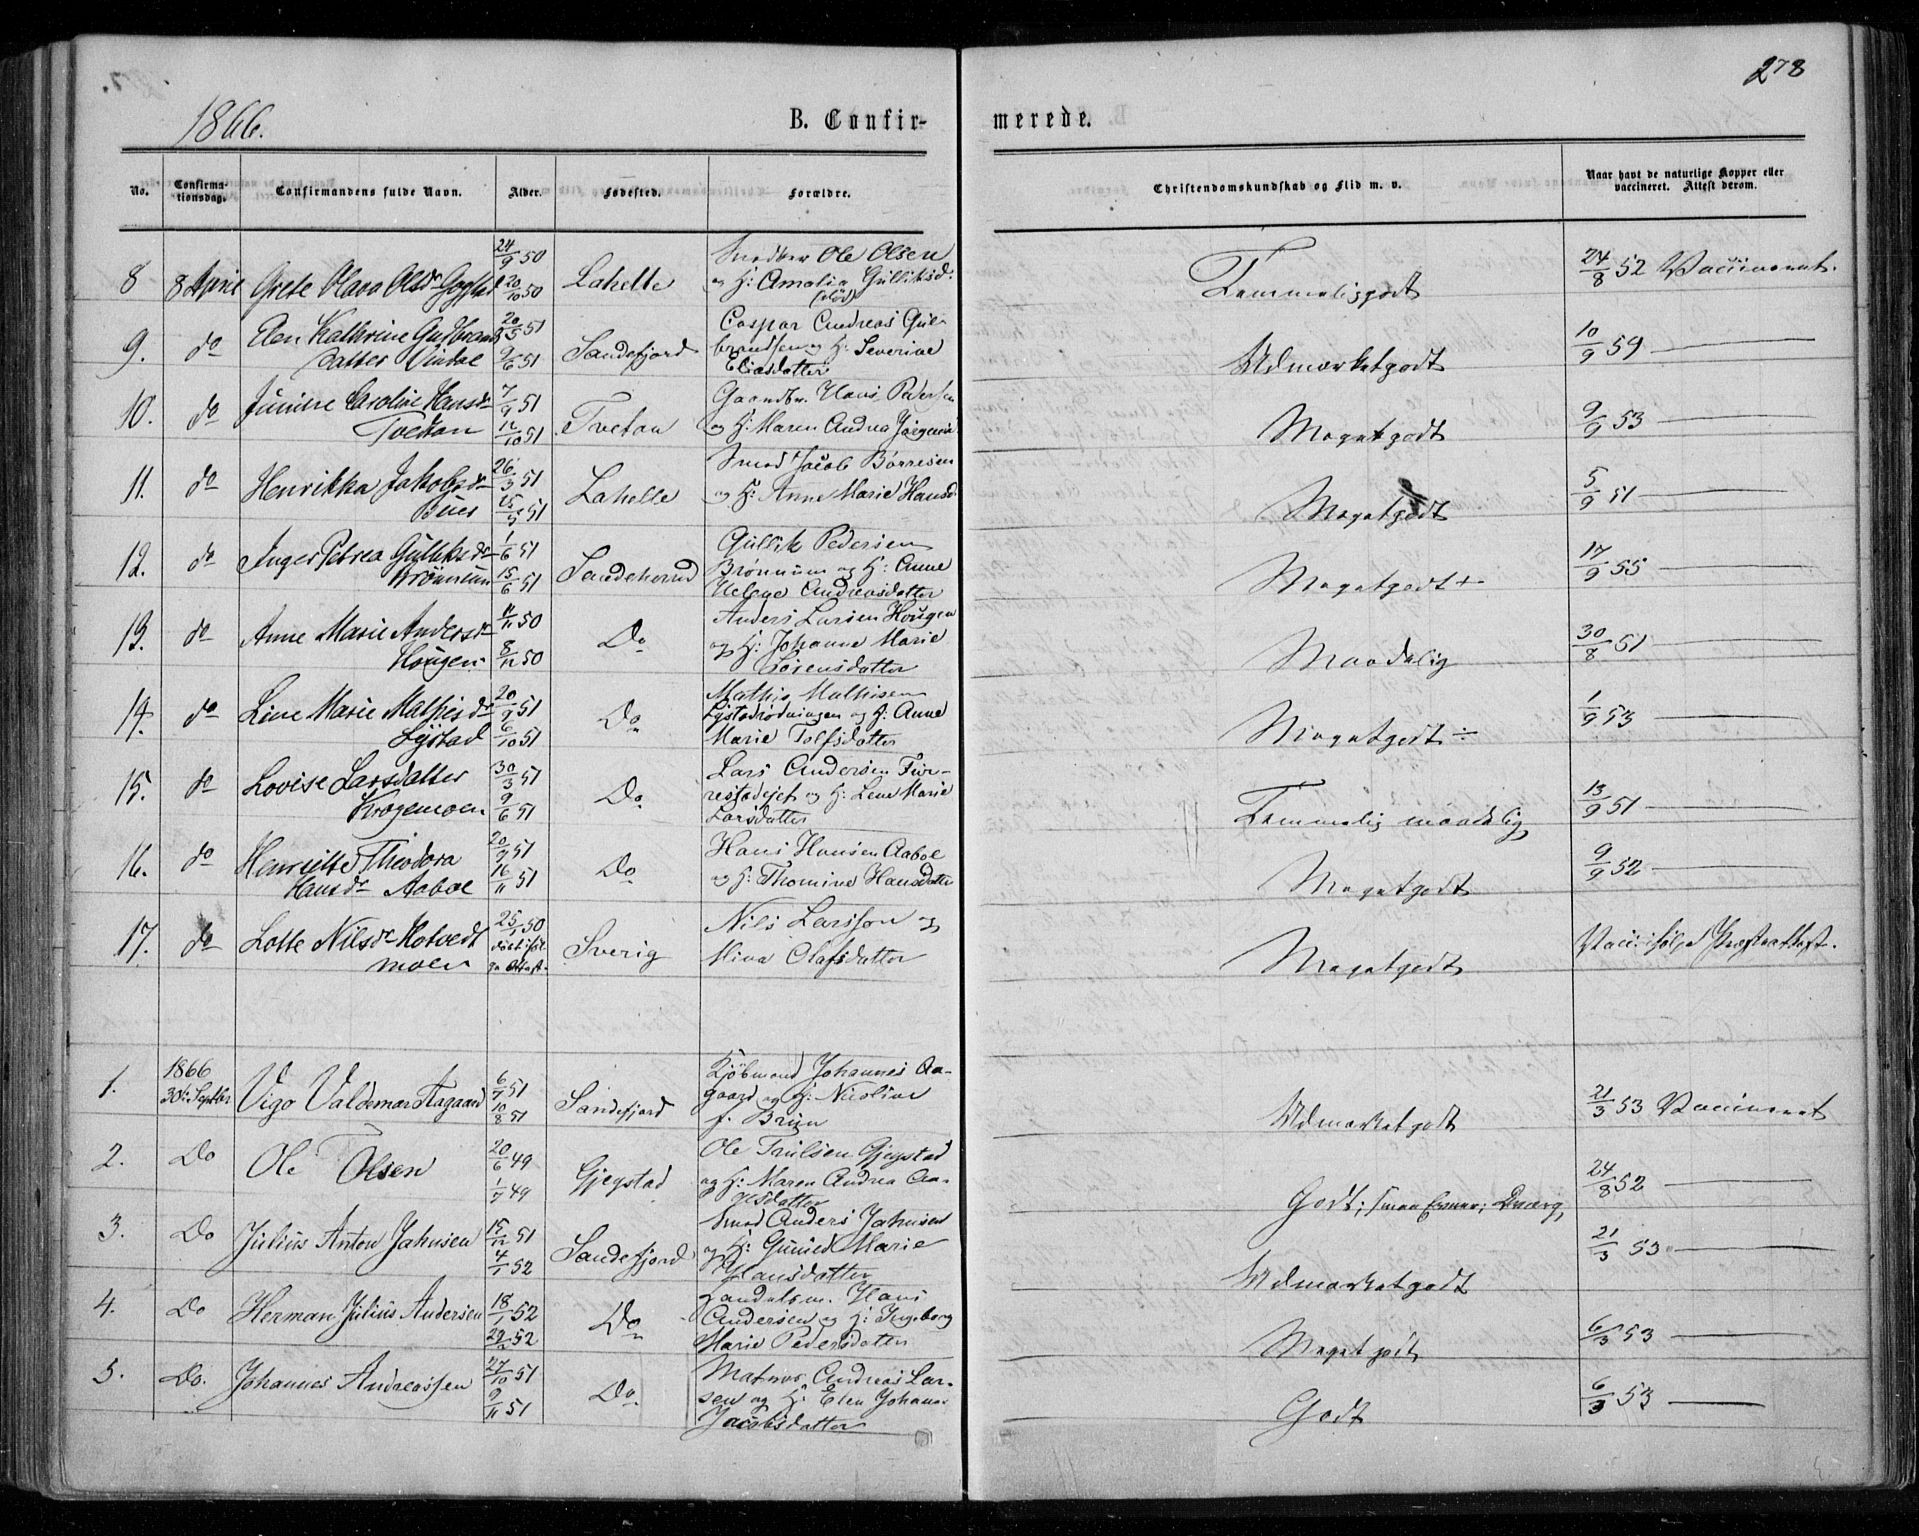 278
1866.
B. Confir- merede.
No. Confirma-tionsdag. Confirmandens fulde Navn. Alder. Fødested. Forældre. Christendomskundskab og Flid m. v. Naar havt de naturlige Kopper eller vaccineret. Attest derom.
8 8 April Grete Olava Olsdr Gogstad 24/9 50 20/10 50 Lahelle Snedker Ole Olsen og H: Amalia Gulliksd. (død) Temmeliggodt 24/8 52 Vaccineret.
9. do Elen Kathrine Gulbrands datter Vindal 20/5 51 9/6 51 Sandefjord Caspar Andreas Gulbrandsen og H: Severine Eliasdatter Udmærketgodt 10/9 59 —
10. do Jumine Caroline Hansdr Tvetan 7/9 51 12/10 51 Tvetan Gaardbr. Hans Pedersen og H: Maren Andrea Jørgensd. Megetgodt 9/9 53 —
11. do Henrikka Jakobsdr Buer 26/3 51 15/5 51 Lahelle Smed Jacob Børresen og H: Anne Marie Hansd. Megetgodt 5/9 51 —
12. do Inger Petrea Gulliksdr Brønnum 1/6 51 15/6 51 Sandeherred Gullik Pedersen Brønnum og H: Anne Helene Andreasdatter Megetgodt + 17/9 55 —
13. do Anne Marie Andersdr Hougen 11/11 50 8/12 50 Do Anders Larsen Hougen og H: Johanne Marie Sørensdatter Maadelig 30/8 61 —
14. do Line Marie Mathisdr Lystad 20/9 51 6/10 51 Do Mathis Mathisen Lystadrødningen og H: Anne Marie Tolfsdatter Megetgodt ÷ 1/9 53 —
15. do Lovise Larsdatter Krogemoen 30/3 51 9/6 51 Do Lars Andersen Furrestadejet og H: Lene Marie Larsdatter Temmelig maadelig 13/9 51 —
16. do Henriette Theodora Hansdr Aaboe 20/9 51 16/11 51 Do Hans Hansen Aaboe og H: Thomine Hansdatter Megetgodt 9/9 52 —
17. do Lotte Nilsdr Hotvedt moen 25/1 50 døbt ifølge Attest. Sverig Nils Larsson og Mina Olafsdatter Megetgodt Vacc. ifølge Præsteattest.
1. 1866 30te Septber Vigo Valdemar Aagaard 6/7 51 10/8 51 Sandefjord Kjøbmand Johannes Aagaard og H: Nicoline f. Bruun Udmærketgodt 21/3 53 Vaccineret
2. Do Ole Olsen 20/6 49 1/7 49 Gjegstad Ole Trulsen Gjegstad og H: Maren Andrea Aagesdatter Godt; smaa Evner; Dværg, 24/8 52 —
3. Do Julius Anton Jahnsen 15/12 51 4/1 52 Sandefjord Smed Anders Jahnsen og H: Gunild Marie Hansdatter Udmærketgodt 21/3 53 —
4. Do Herman Julius Andersen 18/1 52 29/2 52 Do Handelsm. Hans Andersen og H: Ingeborg Marie Pedersdatter Meget godt 6/3 53 —
5. Do. Johannes Andreassen 27/10 51 9/11 51 Do Matros Andreas Larsen og H: Elen Johanne Jacobsdatter Godt 6/3 53 —